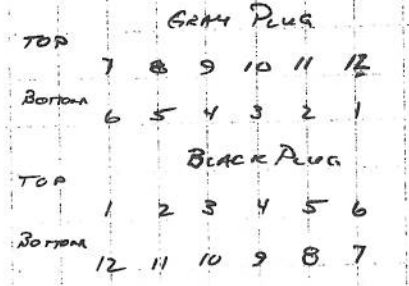 GRAY PLUG
TOP
7 8 9 10 11 12
BOTTOM
6 5 4 3 2 1
BLACK PLUG
TOP
1 2 3 4 5 6
BOTTOM
12 11 10 9 8 7